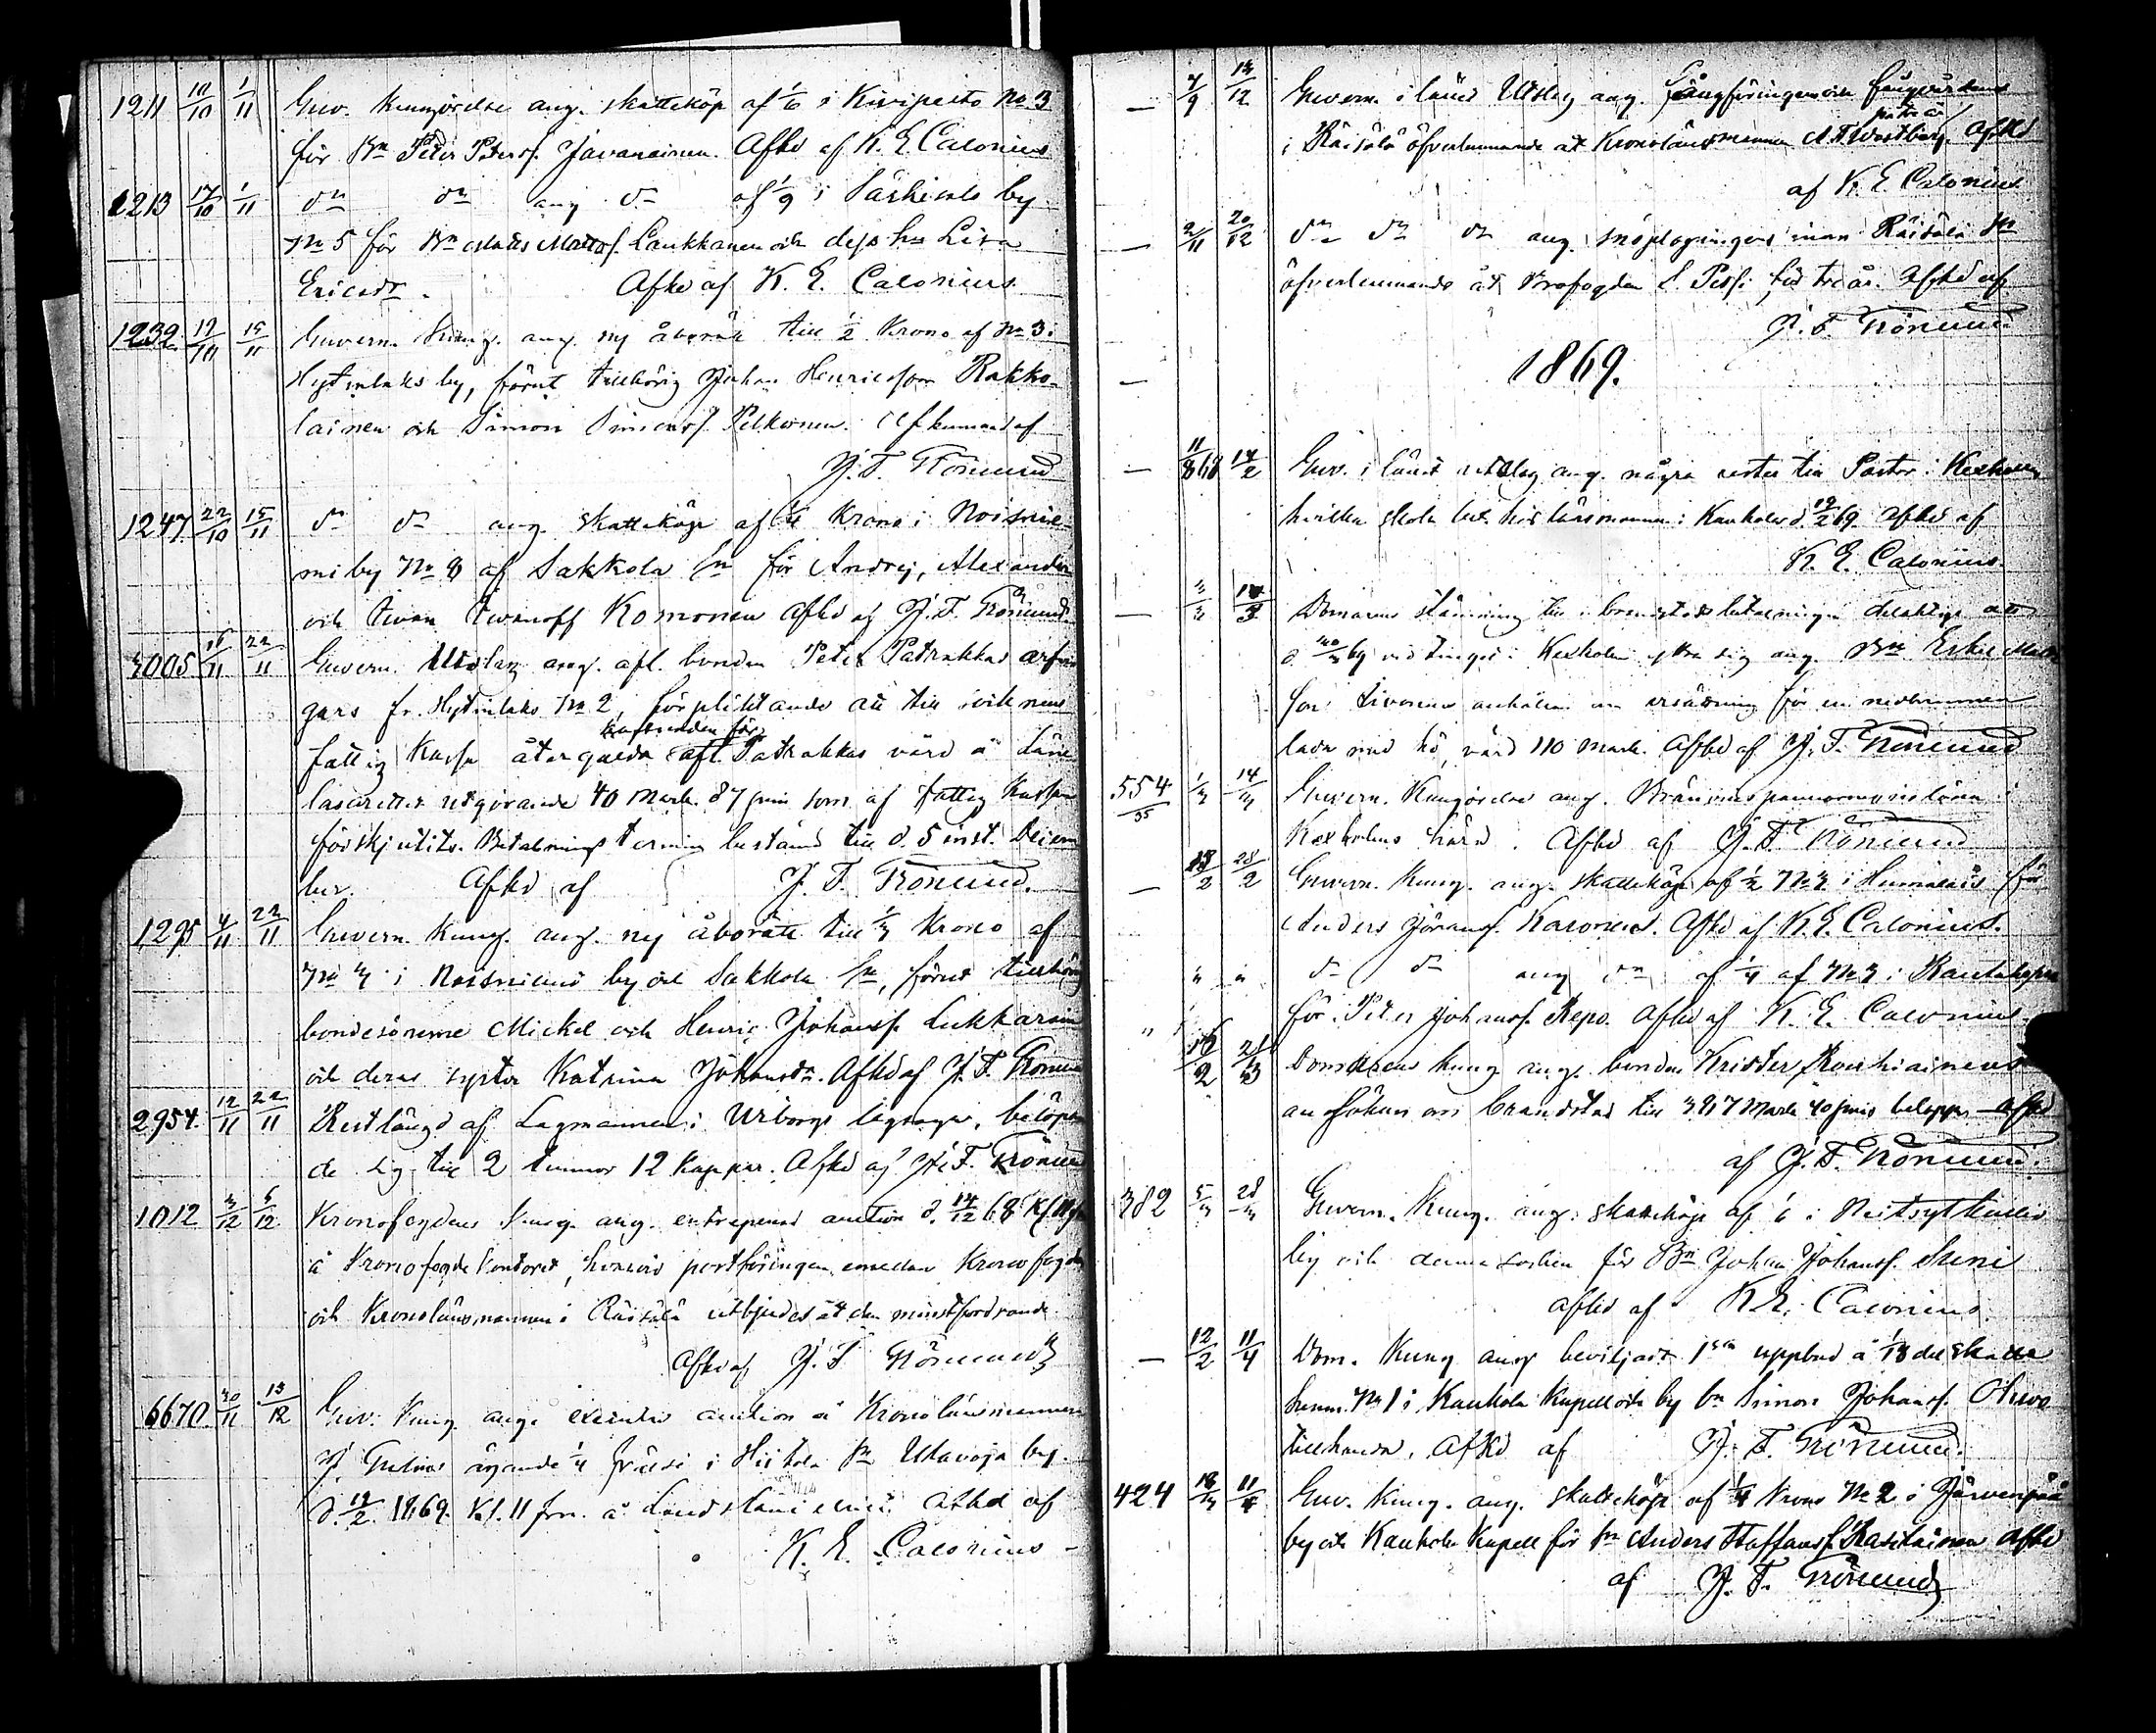 1211 10/10 1/11 Guv. Kungörelse ang. skatteköp af 1/6 i Kiviperto No 3
för Bn Peter Petersf. Javanainen. Afkd af K. E. Calonius
1213 17/10 1/11 dn dn ang dn af 1/9 i Särkisalo by
No 5 för Bn Matts Mattsf. Laukkanen och dess hu Lisa
Ericsdr. Afkd af K. E. Calonius
1239 19/10 15/11 Guvern. Kung. ang. ny åborätt till 1/2 Krono af No 3 i
Hytinlaks by, förut tillhörig Johan Henricsson Rakko-
lainen och Simon Simonsf. Pelkonen. Afkunnad af
J. F. Grönlund
1247 22/10 15/11 dn dn ang. skatteköp af 1/4 Krono i Noisnie-
mi by No 8 af Sakkola Sn för Andrej, Alexander
och Iwan Iwanoff Komonen Afkd af J. F. Grönlund
3005 16/11 22/11 Guvern. Utslag ang. afl. bonden Peter Patrakkas arfvin
gars fr. Hytinlaks No 2, förpliktande att till socknens
kostnaden för
fattig Kassa återgälda afl. Patrakkas vård å Läne
lasarettet utgörande 40 Mark 87 pmi som af fattig Kassan
förskjutits. Betalnings termin bestämd till d. 5 inst. Decem
ber. Afkd af J. F. Grönlund.
1295 4/11 22/11 Guvern. Kung. ang. ny åborätt till 1/3 Krono af
No 3 i Noisniemi by och Sakkola Sn, förut tillhörig
bondesönerne Mickel och Henric Johansf. Lukkarinen
och deras syster Katrina Johansdr. Afkd af J. F. Grönlund
2954. 12/11 22/11 Restlängd af Lagmannen i Wiborgs lagsaga, belöpan
de sig till 2 tunnor 12 kappar. Afkd af J. F. Grönlund
1012 3/12 5/12 Kronofogdens Kung. ang. entreprenad auction d. 14/12 68
å Kronofogde Kontoret, hvarvid postföringen emellan Kronofogden
och Kronolänsmannen i Räisälä utbjudes åt den minstfordrande.
Afkd af J. F. Grönlund
6670 30/11 13/12 Guv. Kung. ang. executiv auction å Kronolänsmannen
J. ägande 1/4 frälse i Hiitola Sn Utavoja by.
d. 19/2 1869. Kl. 11 fm. å Landskansliet. Afkd af
K. E. Calonius
— 7/9 13/12 Guvern. i länet Utslag ang. Fångföringen och fångvården
på tre år
i Räisälä öfverlemnande åt Kronolänsmannen A. F. Westberg. Afkd
af K. E. Calonius
— 2/11 20/12 dn dn dn ang. snöplogningens inom Räisälä Sn
öfverlemnande åt Brofogden S. Pessi för tre år. Afkd af
J. F. Grönlund
— 1869.
— 11/8 68 14/2 Guv. i länet utslag ang. några rester till Pastor i Kexholm
hvilka skola bet. hos länsmannen i Kaukola d. 19/2 69. Afkd af
K. E. Calonius.
— 3/2 14/3 Domarens stämning till i brandstodsbetalningen delaktige att
d. 30/3 69 vid tinget i Kexholm yttra sig ang. Bn Eskil Matts
son Sivonens anhållan om ersättning för en nedbrunnen
lada med hö, värd 110 mark. Afkd af J. F. Grönlund
554/35 1/3 14/3 Guvern. Kungörelse ang. Bränvinspannornas i
Kexholms härad. Afkd af J. F. Grönlund
— 18/2 28/2 Guvern. Kung. ang. skatteköp af 1/2 No 3 i Humalais för
Anders Jöransf. Karonen. Afkd af K. E. Calonius.
" " dn dn ang dn af 1/4 af No 3 i
för Peter Johansf. Repo. Afkd af K. E. Calonius
" 16/2 21/3 Domarens kung ang. bonden Krister Rouhiainens
ansökan om brandstod till 3917 Mark 40 pmis belopp. Afkd
af J. F. Grönlund.
382 5/3 28/3 Guvern. Kung. ang. skatteköp af 1/6 i Neitsytkallio
by och denna socken för Bn Johan Johansf. Suni
Afkd af K. E. Calonius
— 12/2 11/4 Dom. Kung ang beviljadt 1sta uppbud å 1/18 del skatte
hemm. No 1 i Kaukola Kapell och by bn Simon Johansf. Ohwo
tillhanda. Afkd af J. F. Grönlund.
424 18/3 11/4 Guv. Kung. ang. skatteköp af 1/4 Krono No 2 i Järvenpää
by och Kaukola Kapell för bn Anders Staffansf. Rastainen Afkd
af J. F. Grönlund